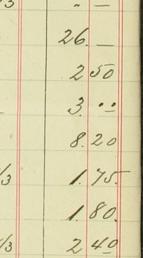 /3 " —
26. —
2 50
3. ..
8.20
/3 1.75.
1.80.
/3 2 40